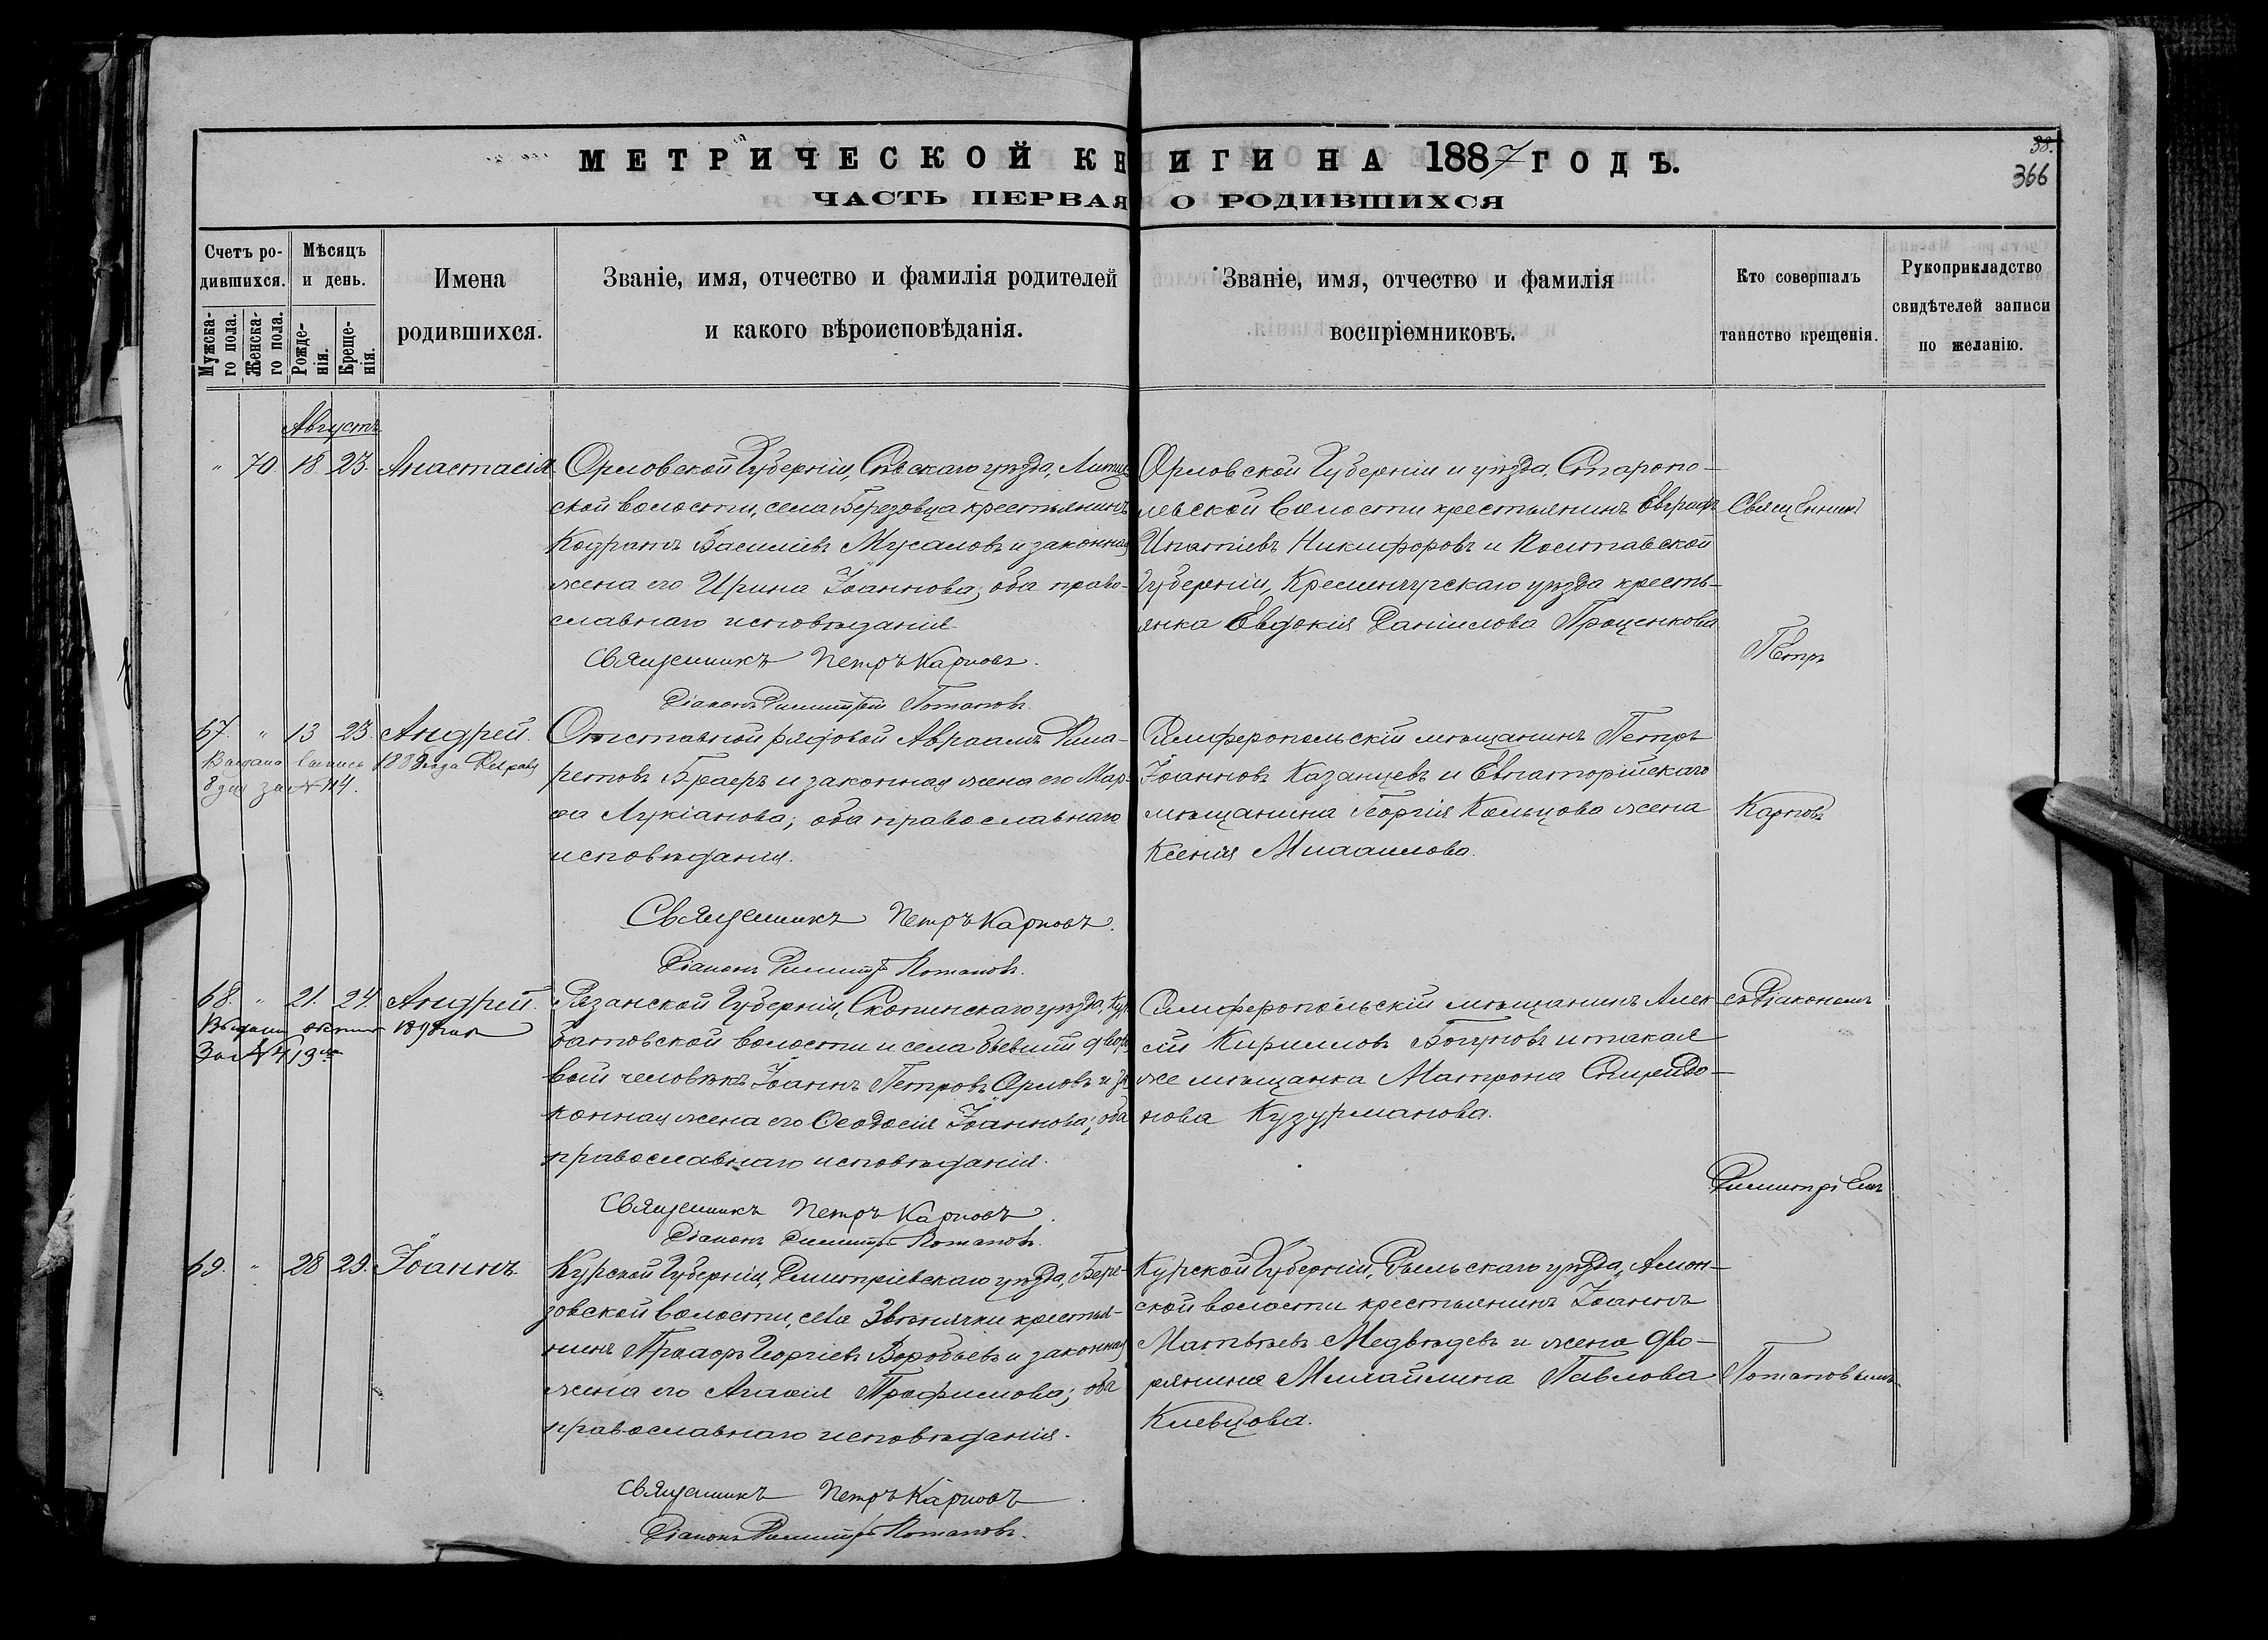 МЕТРИЧЕСКОЙ КНИГИ НА 1887 ГОДЪ.
38.
366
ЧАСТЬ ПЕРВАЯ О РОДИВШИХСЯ
Счетъ родившихся.
Мужскаго пола.
Женскаго пола.
Мѣсяцъ и день.
Рожденія.
Крещенія.
Имена родившихся.
Званіе, имя, отчество и фамилія родителей
и какого вѣроисповѣданія.
Званіе, имя, отчество и фамилія
воспріемниковъ.
Кто совершалъ
таинство крещенія.
Рукоприкладство
свидѣтелей записи
по желанію.
Августъ
" 70 18 23. Анастасія
Орловской Губерніи, Сѣвскаго уѣзда,
ской волости, села Березовца крестьянинъ
Кодратъ Василіевъ Мусаловъ и законная
жена его Ирина Іоаннова; оба право-
славнаго исповѣданія
Священникъ Петръ Карповъ.
Діаконъ Димитрій Потаповъ.
Орловской Губерніи и уѣзда, Старопо-
левской волости крестьянинъ Евграфъ
Ипатіевъ Никифоровъ и Полтавской
Губерніи, Кременчугскаго уѣзда кресть-
янка Евдокія Даніилова Проценкова
Священникъ
Петръ
Карповъ
67. " 13 23. Андрей.
Выдана выпись 1888 года Февраля
8 дня за № 114.
Отставной рядовой Авраамъ Фила-
ретовъ Браеръ и законная жена его Мар-
ѳа Лукіанова; оба православнаго
исповѣданія.
Священникъ Петръ Карповъ.
Діаконъ Димитрій Потаповъ.
Симферопольскій мѣщанинъ Петръ
Іоанновъ Казанцевъ и Евпаторійскаго
мѣщанина Георгія Кольцова жена
Ксенія Михаилова.
68. " 21. 24. Андрей.
За № 419
Рязанской Губерніи, Скопинскаго уѣзда, Кур-
батовской волости и села бывшій дворо
вой человѣкъ Іоаннъ Петровъ Орловъ и за
конная жена его Ѳеодосія Іоаннова; оба
православнаго исповѣданія.
Священникъ Петръ Карповъ.
Діаконъ Димитрій Потаповъ.
Симферопольскій мѣщанинъ Алек
сій Кирилловъ Богуновъ и такая
же мѣщанка Матрона Спиридо-
нова Кузурманова.
съ Діакономъ
Димитріемъ
Потаповымъ
69. " 28 29. Іоаннъ.
Курской Губерніи, Дмитріевскаго уѣзда, Бере-
зовской волости, села Звенячки крестья-
нинъ Георгіевъ Воробьевъ и законная
жена его Агаѳія Трофимова; оба
православнаго исповѣданія.
Священникъ Петръ Карповъ.
Діаконъ Димитрій Потаповъ.
Курской Губерніи, Рыльскаго уѣзда, Амон-
ской волости крестьянинъ Іоаннъ
Матвѣевъ Медвѣдевъ и жена дво-
рянина Павлова
Клевцова.